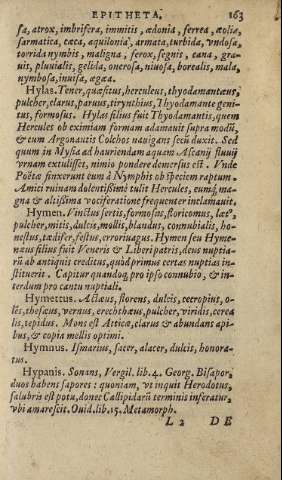 EPITHETA. 163
sa, atrox, imbrifera, immitis, ædonia, ferrea, æolia,
sarmatica, cæca, aquilonia, armata, turbida, vndosa,
torrida nymbis, maligna, ferox, segnis, cana, gra-
uis, pluuialis, gelida, onerosa, niuosa, borealis, mala,
nymbosa, inuisa, ægæa.
Hylas. Tener, quæsitus, herculeus, thyodamantæus,
pulcher, clarus, paruus, tirynthius, Thyodamante geni-
tus, formosus. Hylas filius fuit Thyodamantis, quem
Hercules ob eximiam formam adamauit supra modũ,
& cum Argonautis Colchos nauigans secũ duxit. Sed
quum in Mysia ad hauriendam aquam Ascanij fluuij
vrnam extulisset, nimio pondere demersus est. Vnde
Poëtæ finxerunt eum à Nymphis ob speciem raptum.
Amici ruinam dolentißimè tulit Hercules, eumq́; ma-
gna & altißima vociferatione frequenter inclamauit.
Hymen. Vinctus sertis, formosus, floricomus, læt9,
pulcher, mitis, dulcis, mollis, blandus, connubialis, ho-
nestus, tædifer, festus, erroriuagus. Hymen seu Hyme-
næus filius fuit Veneris & Liberi patris, deus nuptia-
rũ ab antiquis creditus, quòd primus certas nuptias in-
stituerit. Capitur quandoq; pro ipso connubio, & in-
terdum pro cantu nuptiali.
Hymettus. Actæus, florens, dulcis, cecropius, o-
lẽs, thesæus, vernus, erechthæus, pulcher, viridis, cerea
lis, tepidus. Mons est Atticæ, clarus & abundans api-
bus, & copia mellis optimi.
Hymnus. Ismarius, sacer, alacer, dulcis, honora-
tus.
Hypanis. Sonans, Vergil. lib. 4. Georg. Bisapor,
duos habens sapores: quoniam, vt inquit Herodotus,
salubris est potu, donec Callipidarũ terminis inseratur,
vbi amarescit. Ouid. lib. 15. Metamorph.
L 2 DE